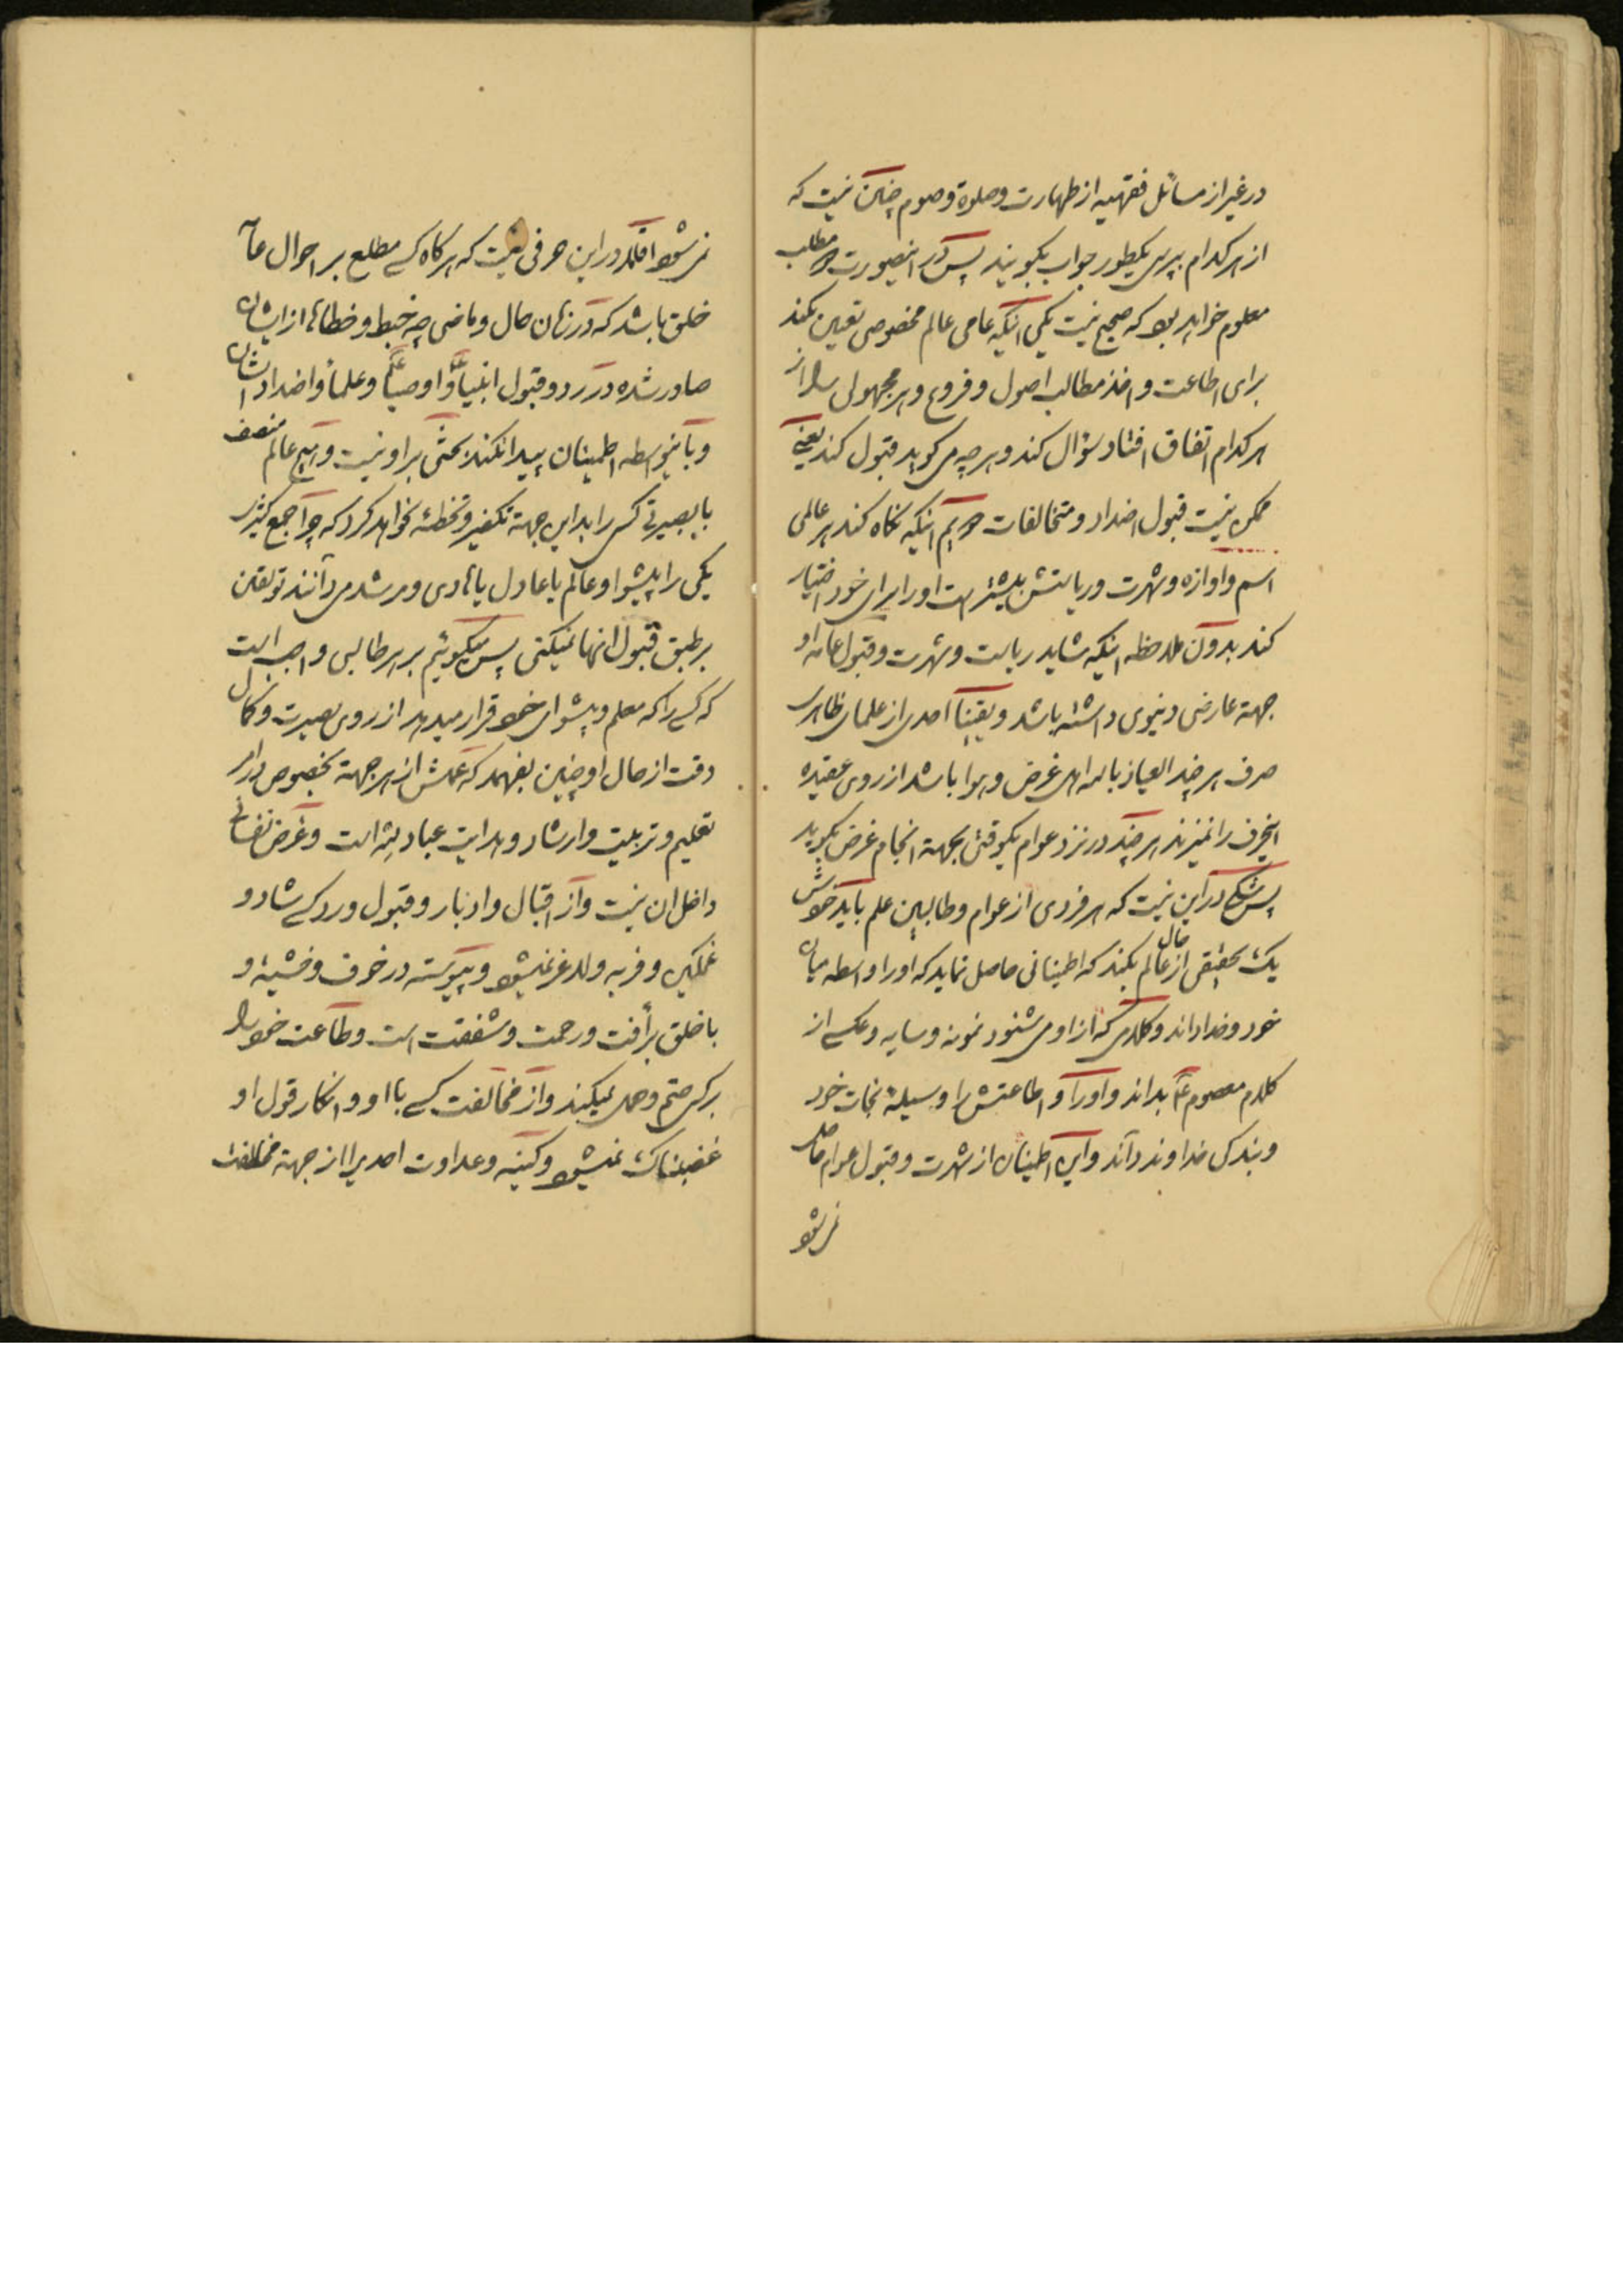 در غیر از مسائل فقهیه از طهارت و صلوة و صوم چنین نیست که
از هر کدام بپرسی یکطور جواب بگویند پس در اینصورت دو مطلب
معلوم خواهد بود که صحیح نیست یکی اینکه عامی عالم مخصوصی تعیین نکند
برای اطاعت و اخذ مطالب اصول و فروع و هر مجهولی را از
هر کدام اتفاق افتاد سؤال کند و هر چه می گوید قبول کند یعنی
ممکن نیست قبول اضداد و متخالفات دویم اینکه نگاه کند هر عالمی
اسم و اوازه و شهرت و ریاستش بیشتر است او را برای خود اختیار
کند بدون ملاحظه اینکه شاید ریاست و شهرت و قبول عامه او
جهة عارضی دنیوی داشته باشد و یقیناً احدی از علمای ظاهر
صرف هر چند العیاذ بالله اهل غرض و هوا باشد از روی عقیده
اینحرف را نمیزند هر چند در نزد عوام یکوقتی بجهة انجام غرض بگوید
پس شکی در این نیست که هر فردی از عوام و طالبین علم باید خودش
یک تحقیقی از حال عالم بکند که اطمینانی حاصل نماید که او را واسطه میان
خود و خدا داند و کلامی که از او می شنود نمونه و سایه و عکسی از
کلام معصوم ع بداند و او را و اطاعتش را وسیلهٔ نجات خود
و بندگی خداوند داند و این اطمینان از شهرت و قبول عوام حاصل
نمیشود
نمیشود اقلا در این حرفی نیست که هر گاه کسی مطلع بر احوال عامه
خلق باشد که در زمان حال و ماضی چه خبط و خطاها از ایشان
صادر شده در رد و قبول انبیاءً و اوصیاءً و علماء و اضدادشان
و باینواسطه اطمینان پیدا نکند بحثی بر او نیست و هیچ عالم منصف
با بصیرتی کسی را بداین جهة تکفیر و تخطئه نخواهد کرد که چرا جمع کثیر
یکی را پیشوا و عالم یا عادل یا هادی و مرشد می دانند تو یقین
بر طبق قبول انها نمیکنی پس میگوئیم بر هر طالبی واجب است
که کسی را که معلم و پیشوای خود قرار میدهد از روی بصیرت و کمال
دقت از حال او چنین بفهمد که عملش از هر جهة بخصوص در امر
تعلیم و تربیت و ارشاد و هدایت عباد لله است و غرض نفسانی
داخل ان نیست و از اقبال و ادبار و قبول و رد کسی شاد و
غمگین و فربه و لاغر نمیشود و پیوسته در خوف و خشیة و
با خلق برأفت و رحمت و شفقت است و طاعت خود را
بر کسی حتم و حمل نمیکند و از مخالفت کسی با او و انکار قول او
غضبناک نمیشود و کینه و عداوت احدیرا از جهة مخالفت